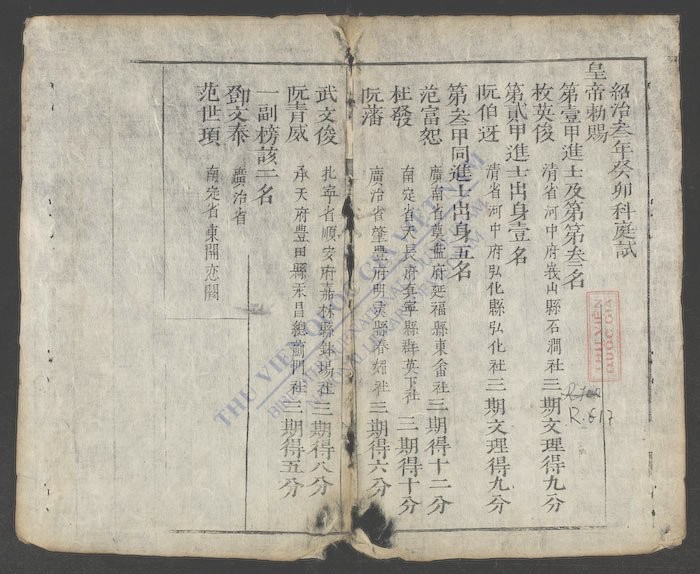 紹治叁年癸卯科庭試
皇帝勅賜
第壹甲進士及第第叁名
枚英俊 清省河中府峩山縣石澗社 三期文理得九分
第貳甲進士出身壹名
阮伯迓 清省河中府弘化縣弘化社 三期文理得九分
第叁甲同進士出身五名
范富恕 廣南省奠盤府延福縣東畬社 三期得十二分
杜發 南定省天長府真寧縣群英下社 三期得十分
阮藩 廣治省肇豐府明灵縣春 社 三期得六分
武文俊 北寧省順安府嘉林縣鉢場社 三期得八分
阮青威 承天府豐田縣禾昌總 社 三期得五分
一副榜該二名
鄧文泰 廣治省
范世項 南定省東關
THƯ VIỆN QUỐC GIA VIỆT NAM
R.617